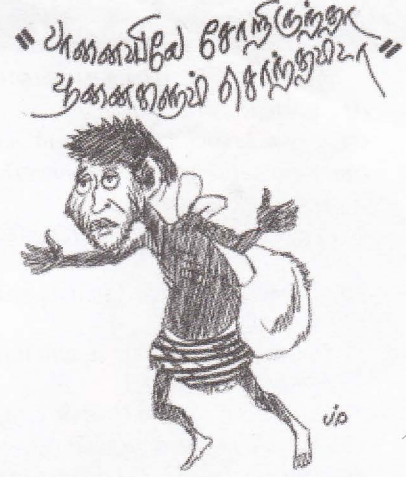 "பானையிலே சோறிருந்தா
பூனைகளும் சொந்தமடா"